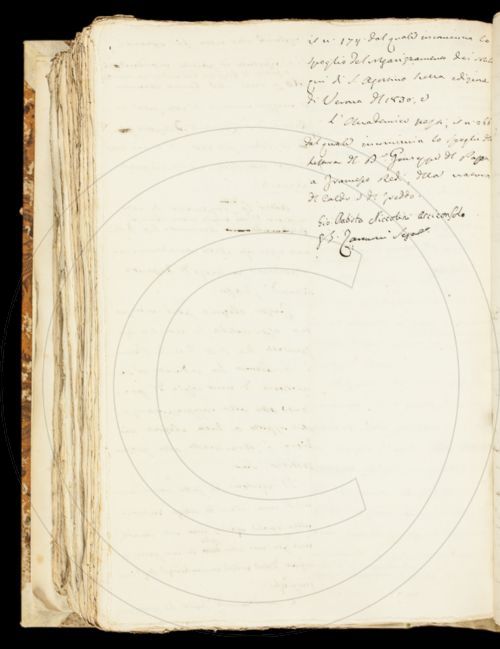 il n.° 174. dal quale incomincia lo
spoglio del Volgarizzamento dei
di S. Agostino della edizione
di Verona del 1830. e
L'Accademico Nesti, il n.
dal quale incomincia lo spoglio della
lettera di D.r Giuseppe del Papa
a Francesco Redi, della natura
del Caldo e del freddo.
Gio Batista Niccolini Arciconsolo
G. B. Zannoni Segret.